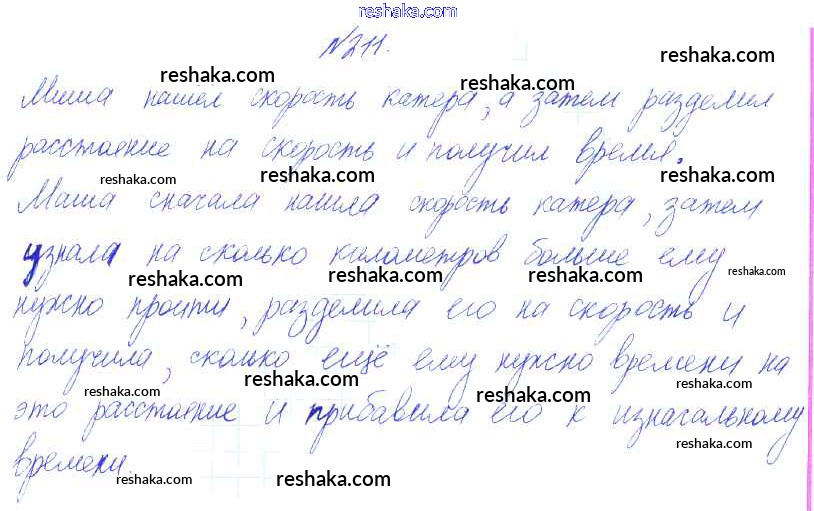 reshaka.com
№211.
reshaka.com
reshaka.com
reshaka.com
Миша нашёл скорость катера, а затем разделил
расстаяние на скорость и получил время.
reshaka.com
reshaka.com
reshaka.com
Маша сначала нашла скорость катера, затем
узнала на сколько километров больше ему
reshaka.com
reshaka.com
reshaka.com
reshaka.com
нужно пройти, разделила его на скорость и
получила, сколько ещё ему нужно времени на
reshaka.com
reshaka.com
reshaka.com
reshaka.com
это расстаяние и прибавила его к изначальному
reshaka.com
времени.
reshaka.com
reshaka.com